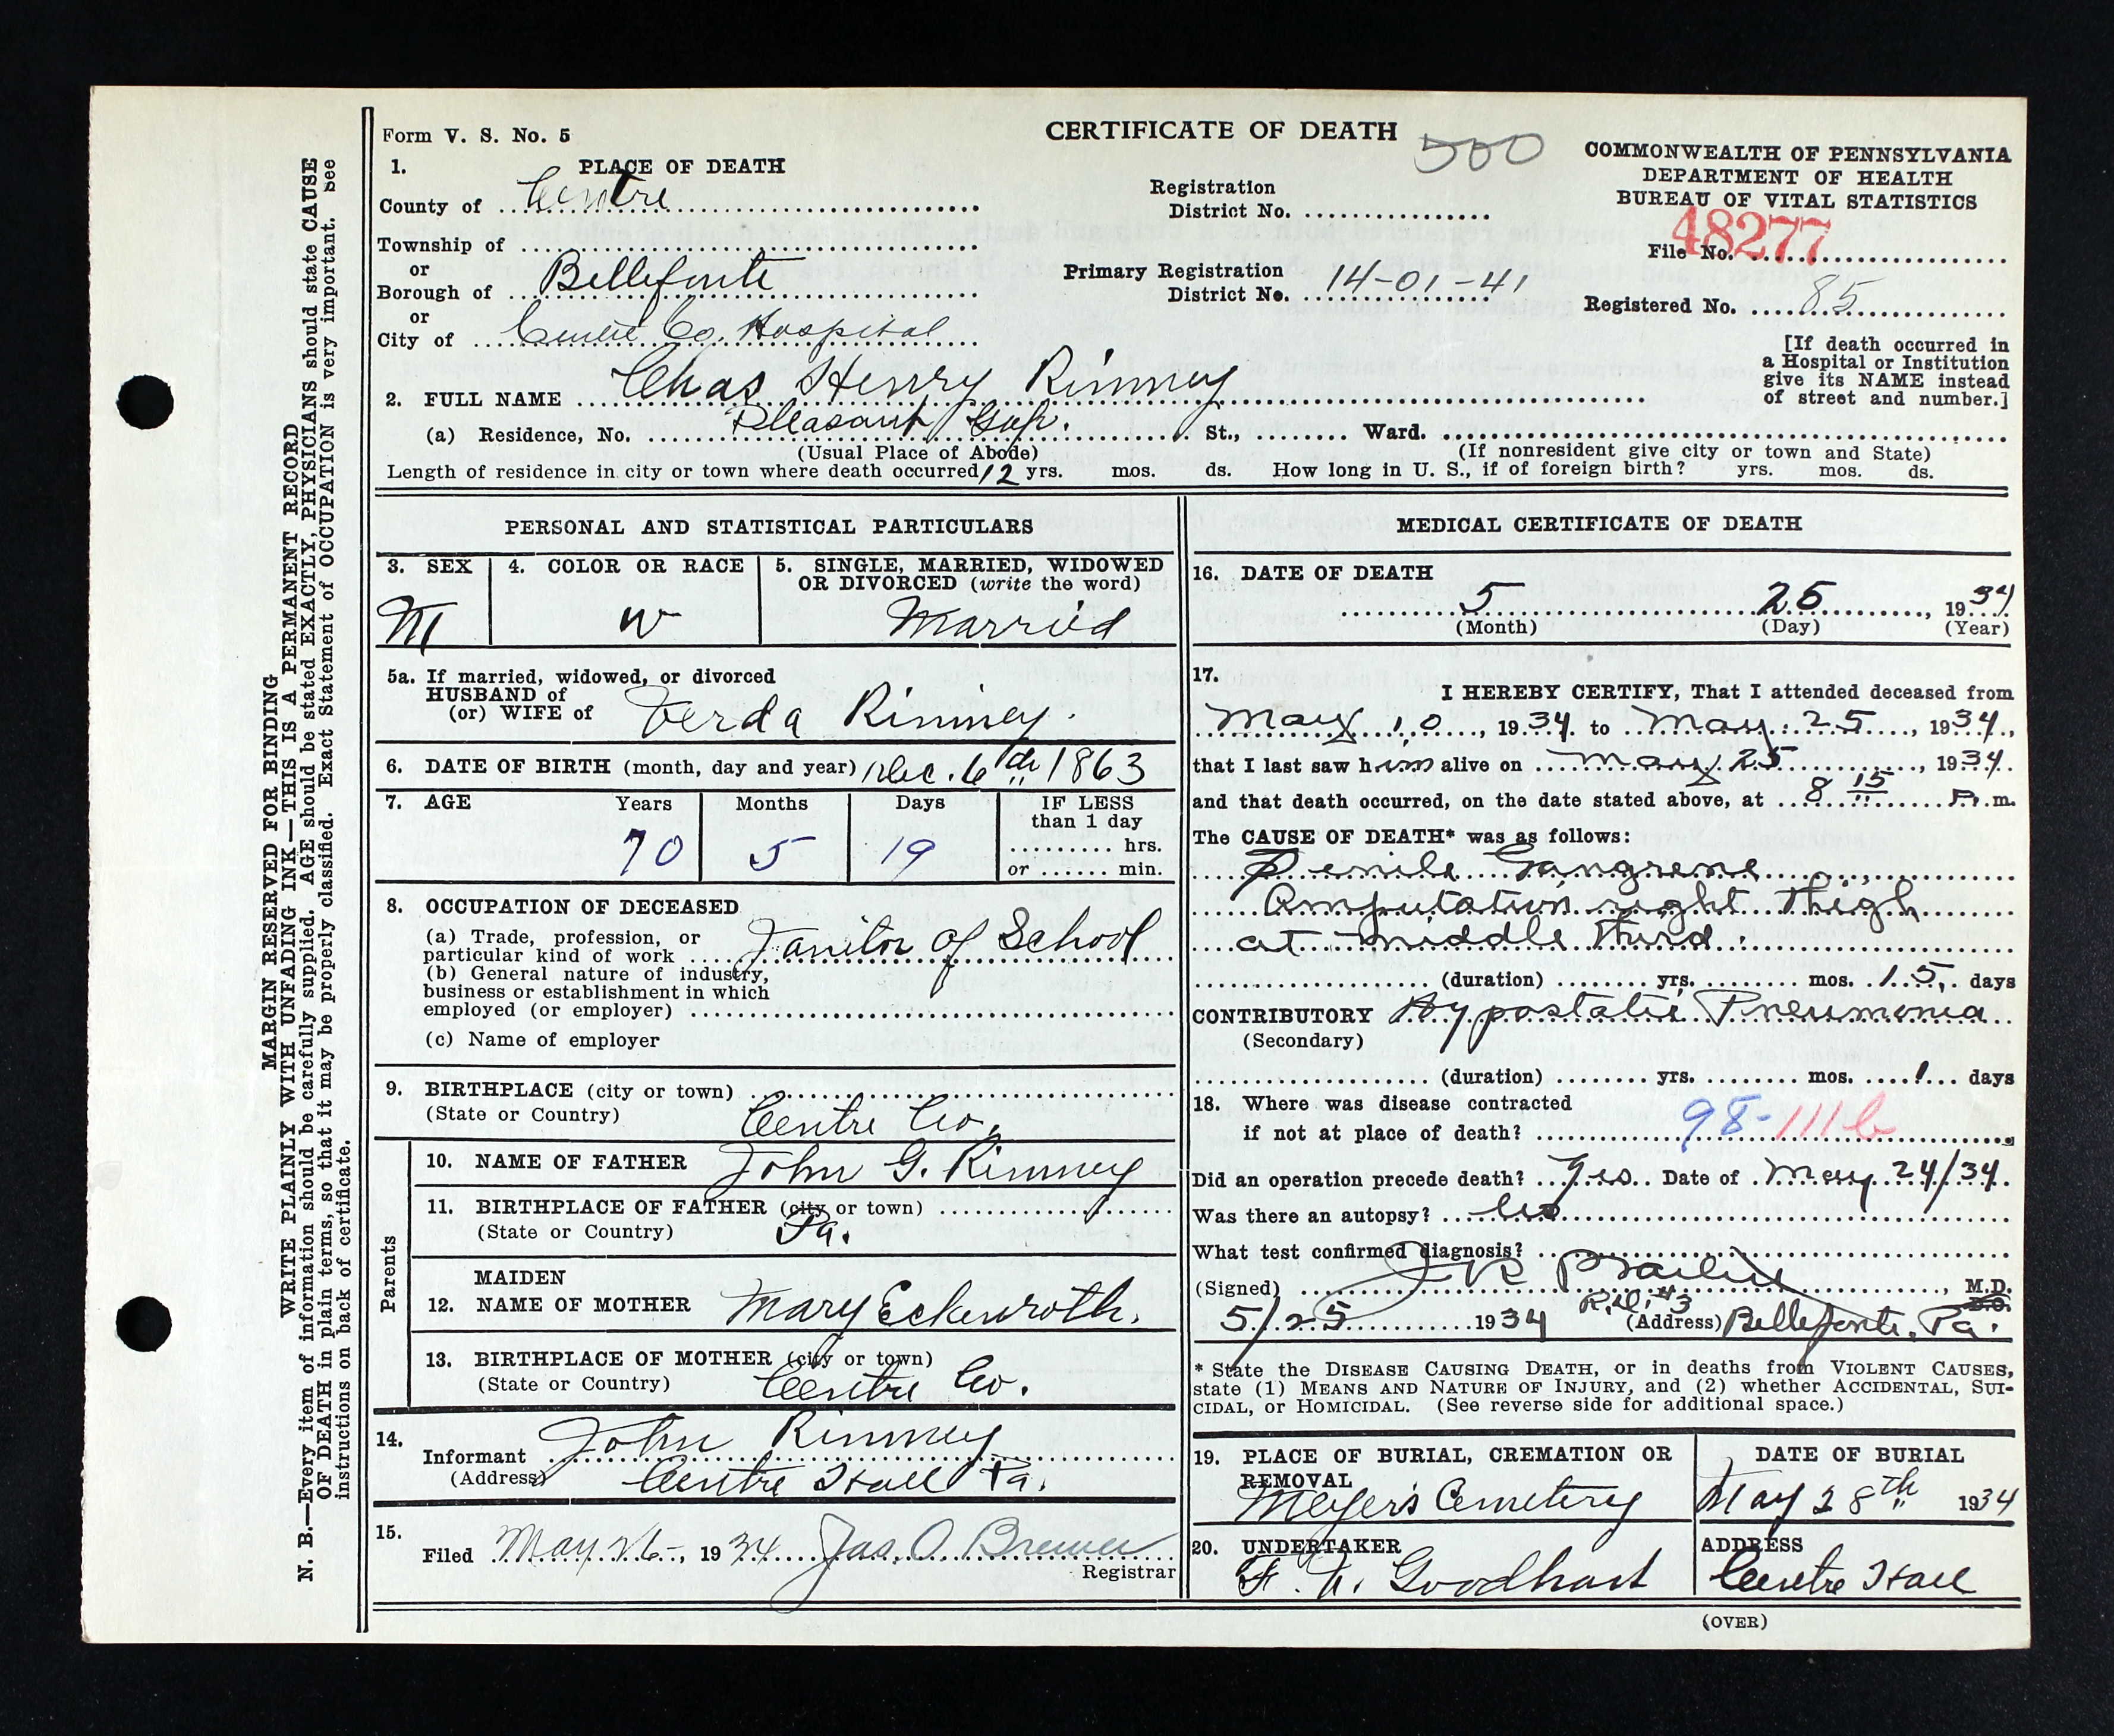 Form V. S. No. 5
CERTIFICATE OF DEATH
500
COMMONWEALTH OF PENNSYLVANIA
DEPARTMENT OF HEALTH
BUREAU OF VITAL STATISTICS
1. PLACE OF DEATH
County of Centre
Registration District No.
48277
File No.
Township of
or
Borough of Bellefonte
Primary Registration District No. 14-01-41
Registered No. 85
or
City of Centre Co. Hospital
[If death occurred in a Hospital or Institution give its NAME instead of street and number.]
2. FULL NAME Chas Henry Rimmey
(a) Residence, No. Pleasant Gap. St., Ward.
(Usual Place of Abode)
(If nonresident give city or town and State)
Length of residence in city or town where death occurred 12 yrs. mos. ds. How long in U. S., if of foreign birth? yrs. mos. ds.
PERSONAL AND STATISTICAL PARTICULARS
3. SEX
M
4. COLOR OR RACE
W
5. SINGLE, MARRIED, WIDOWED OR DIVORCED (write the word)
Married
5a. If married, widowed, or divorced
HUSBAND of
(or) WIFE of Verda Rimmey.
6. DATE OF BIRTH (month, day and year) Dec. 6th 1863
7. AGE Years Months Days IF LESS than 1 day
70 5 19 hrs.
or min.
8. OCCUPATION OF DECEASED
(a) Trade, profession, or particular kind of work Janitor of School
(b) General nature of industry, business or establishment in which employed (or employer)
(c) Name of employer
9. BIRTHPLACE (city or town)
(State or Country) Centre Co.
Parents
10. NAME OF FATHER John G. Rimmey
11. BIRTHPLACE OF FATHER (city or town)
(State or Country) Pa.
12. MAIDEN NAME OF MOTHER Mary Eckenroth.
13. BIRTHPLACE OF MOTHER (city or town)
(State or Country) Centre Co.
14. Informant John Rimmey
(Address) Centre Hall Pa.
15. Filed May 26, 1934 Jas. O. Brewer
Registrar
MEDICAL CERTIFICATE OF DEATH
16. DATE OF DEATH
5 25, 1934
(Month) (Day) (Year)
17. I HEREBY CERTIFY, That I attended deceased from
May 10, 1934 to May 25, 1934,
that I last saw him alive on May 25, 1934
and that death occurred, on the date stated above, at 8 15 m.
The CAUSE OF DEATH* was as follows:
Senile Gangrene
Amputation right Thigh
at middle third.
(duration) yrs. mos. 15, days
CONTRIBUTORY Hypostatic Pneumonia
(Secondary)
(duration) yrs. mos. 1 days
18. Where was disease contracted
if not at place of death? 98-111b
Did an operation precede death? Yes Date of May 24/34
Was there an autopsy?
What test confirmed diagnosis?
(Signed) M.D.
D.O.
R.D. #3
5/25 1934 (Address) Bellefonte, Pa.
* State the DISEASE CAUSING DEATH, or in deaths from VIOLENT CAUSES,
state (1) MEANS AND NATURE OF INJURY, and (2) whether ACCIDENTAL, SUI-
CIDAL, or HOMICIDAL. (See reverse side for additional space.)
19. PLACE OF BURIAL, CREMATION OR REMOVAL
Meyer's Cemetery
DATE OF BURIAL
May 28th 1934
20. UNDERTAKER
Goodhart
ADDRESS
Centre Hall
(OVER)
MARGIN RESERVED FOR BINDING
WRITE PLAINLY WITH UNFADING INK—THIS IS A PERMANENT RECORD
N. B.—Every item of information should be carefully supplied. AGE should be stated EXACTLY, PHYSICIANS should state CAUSE
OF DEATH in plain terms, so that it may be properly classified. Exact Statement of OCCUPATION is very important. See
instructions on back of certificate.